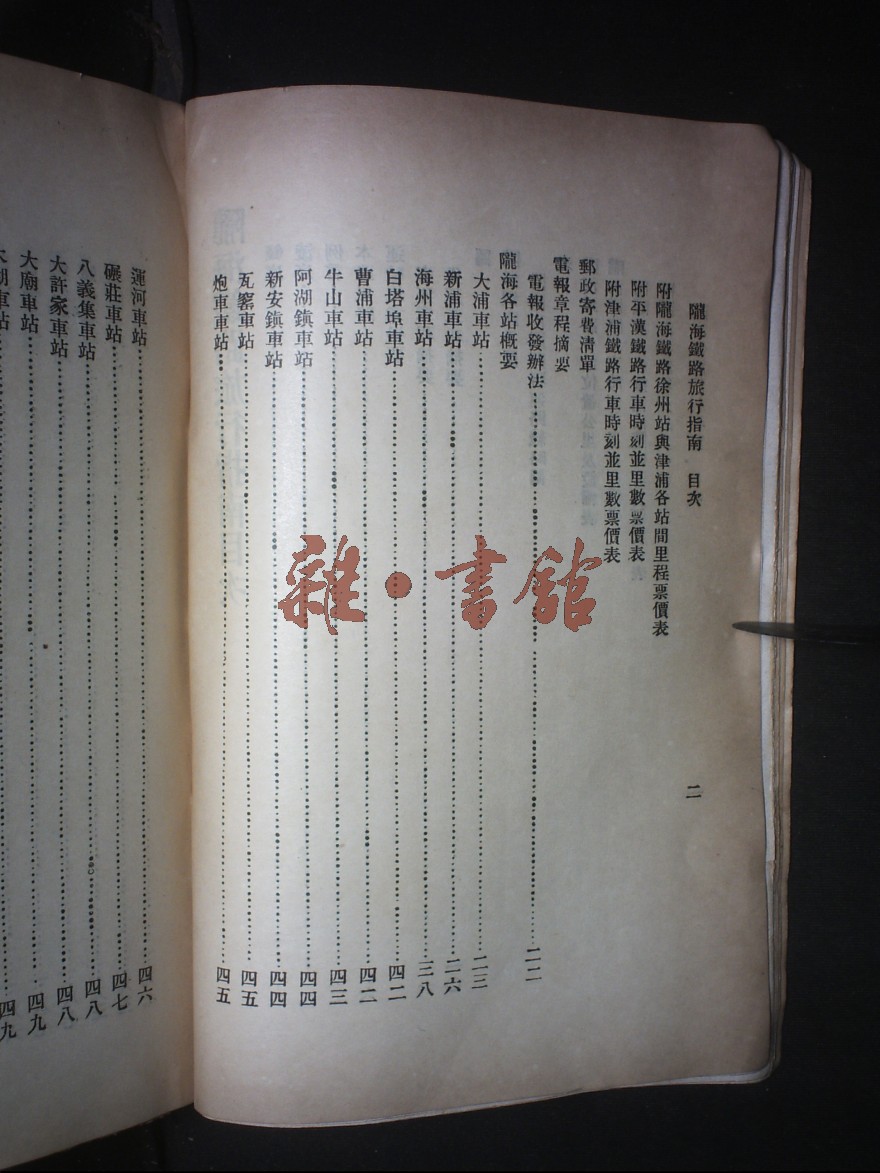 隴海鐵路旅行指南 目次 二
附隴海鐵路徐州站與津浦各站間里程票價表
附平漢鐵路行車時刻並里數票價表
附津浦鐵路行車時刻並里數票價表
郵政寄費清單
電報章程摘要
電報收發辦法……一二
隴海各站概要
大浦車站……二三
新浦車站……二六
海州車站……三八
白塔埠車站……四二
曹浦車站……四二
牛山車站……四三
阿湖鎮車站……四四
新安鎮車站……四四
瓦窰車站……四五
炮車車站……四五
運河車站……四六
碾莊車站……四七
八義集車站……四八
大許家車站……四八
大廟車站……四九
湖車站……四九
雜·書館